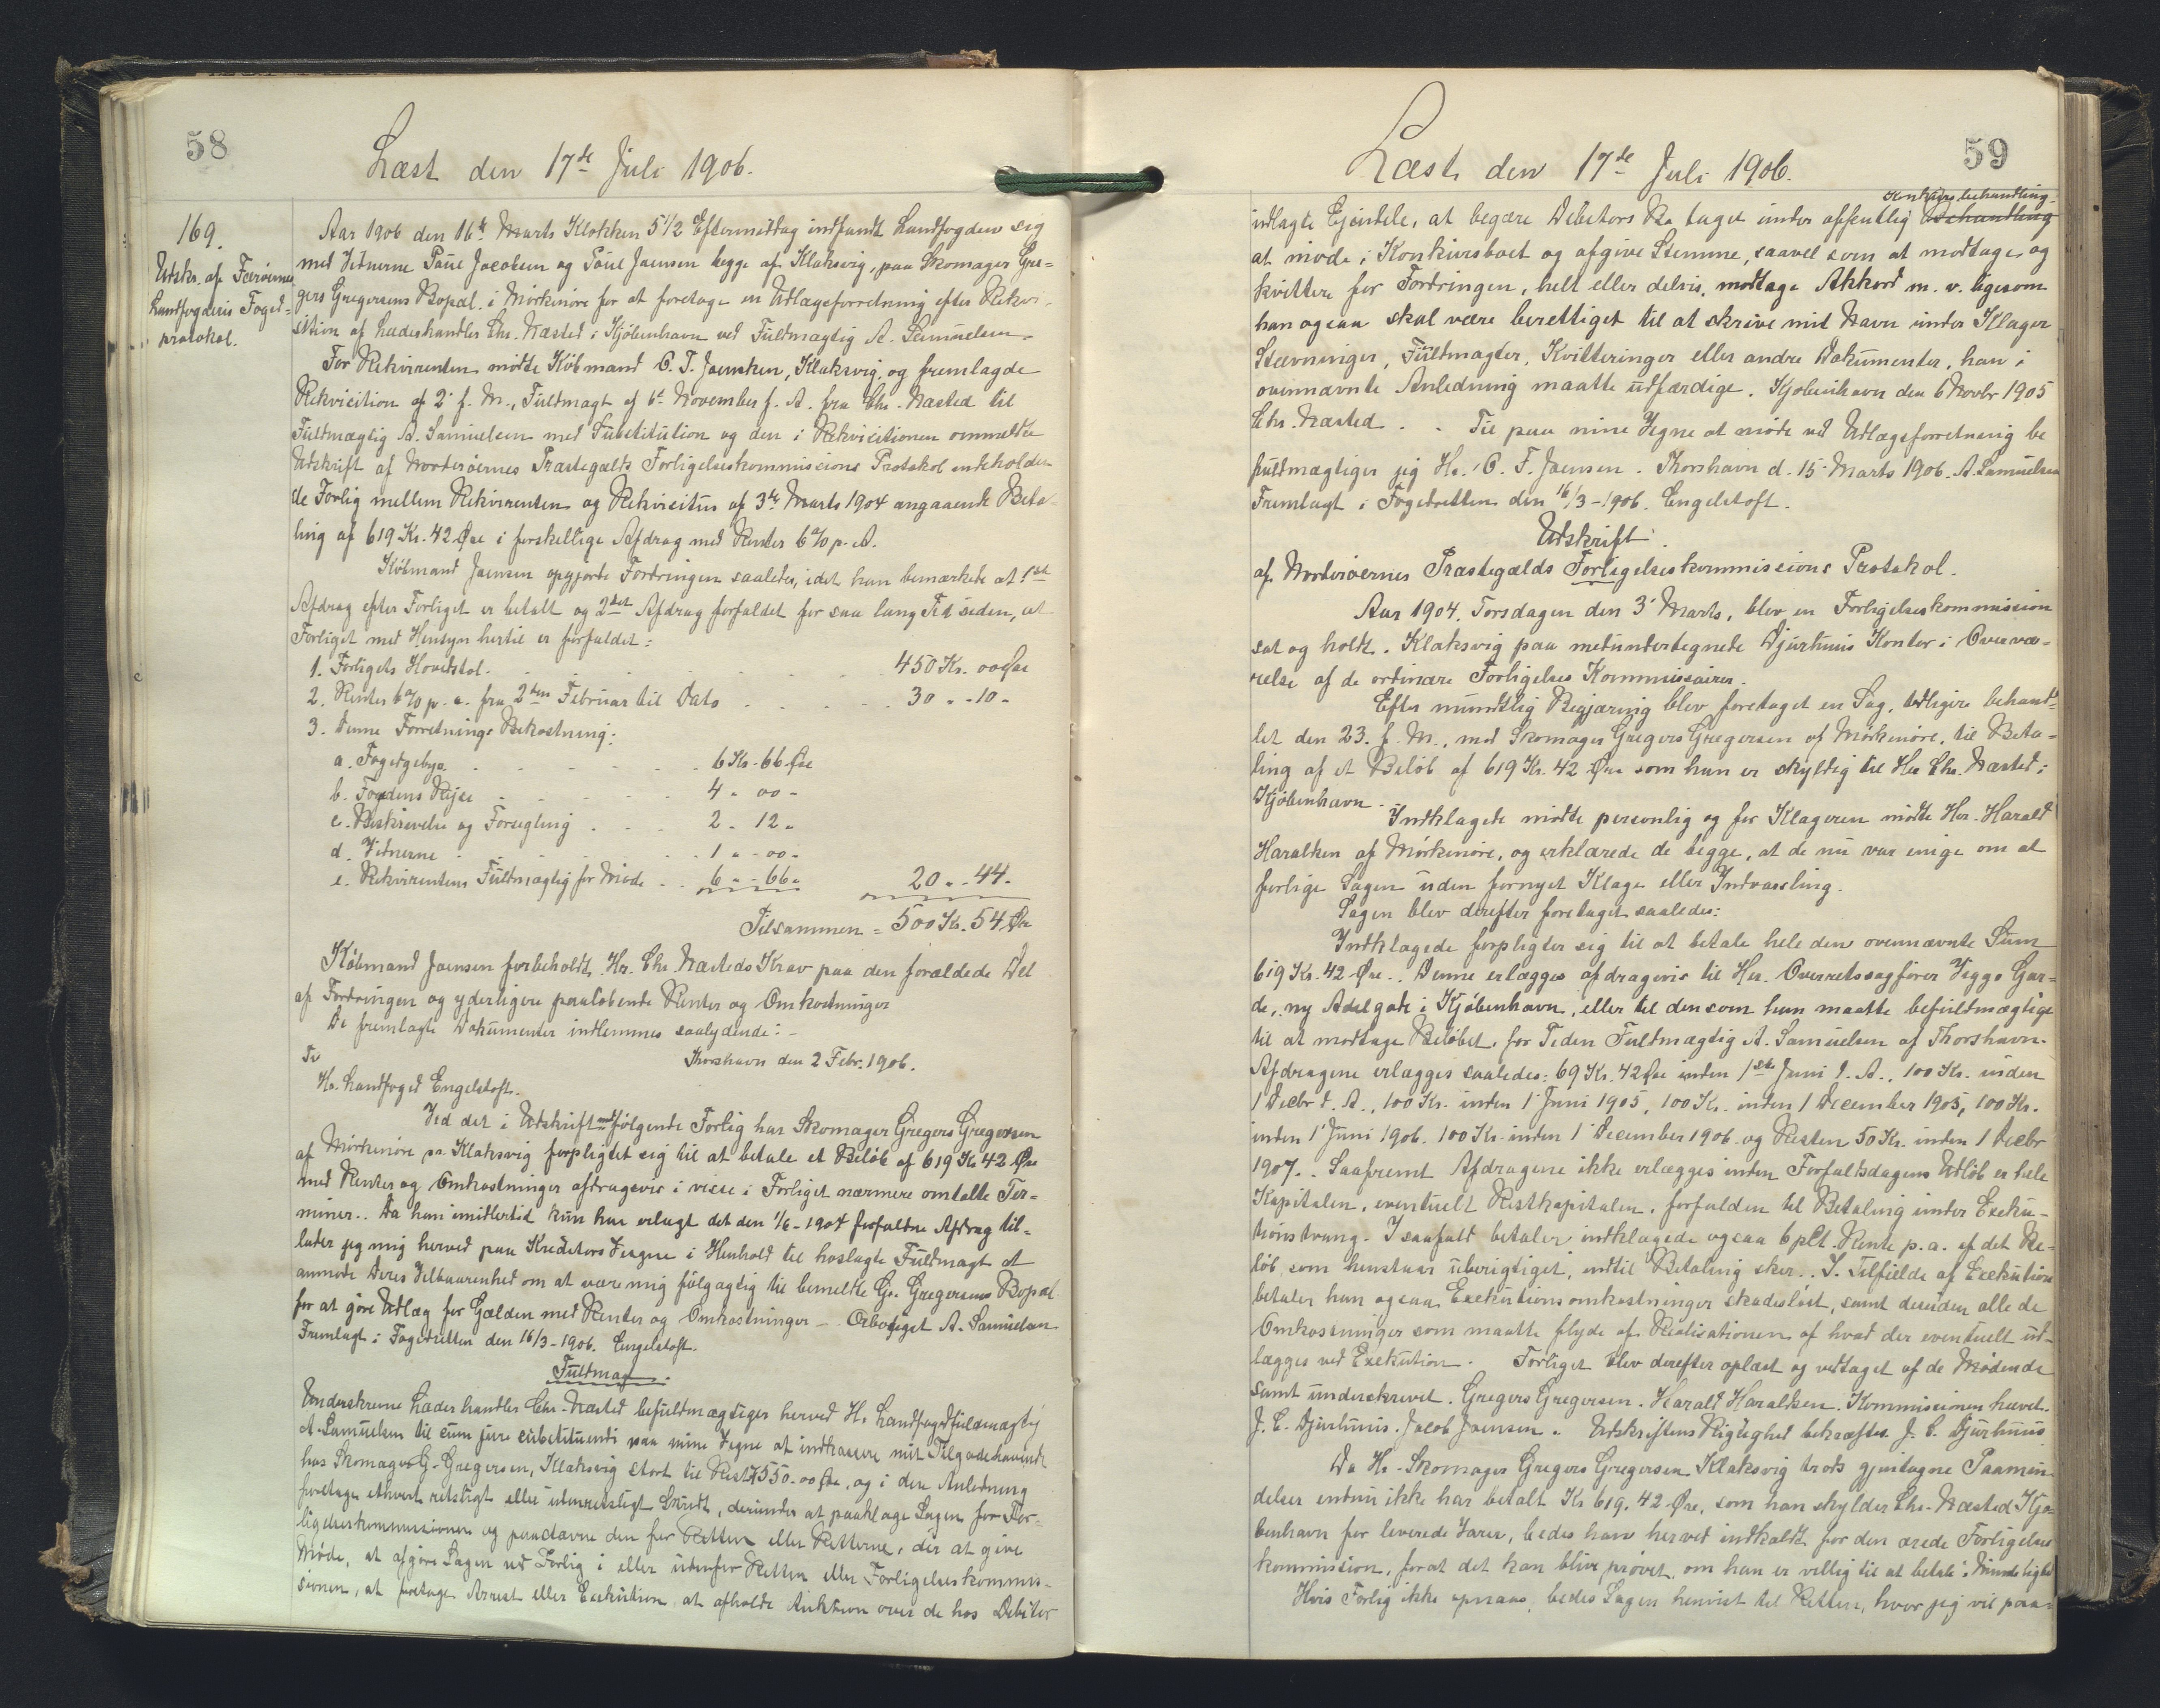 58
Læst den 17de Juli 1906.
169.
Udskr. af Færøernes
Landfogderis Foged-
protokol.
Aar 1906 den 16de Marts Klokken 5 1/2 Eftermiddag indfandt Landfogden sig
med Vidnerne Poul Jacobsen og Poul Joensen begge af Klaksvig, paa Skomager Gre-
gers Gregersens Bopæl i Mørkenøre for at foretage en Udlægsforretning efter Rekvi-
sition af Læderhandler Chr. Næsted i Kjøbenhavn ved Fuldmægtig A. Samuelsen.
For Rekvirenten mødte Købmand C. F. Joensen, Klaksvig, og fremlagde
Rekvicition af 2' f. M., Fuldmagt af 6te November f. A. fra Chr. Næsted til
Fuldmægtig A. Samuelsen med Substitution og den i Rekvicitionen ommeldte
Udskrift af Norderøernes Præstegælds Forligelseskommissions Protokol indeholden-
de Forlig mellem Rekvirenten og Rekvicitus af 3die Marts 1904 angaaende Beta-
ling af 619 Kr. 42 Øre i forskellige Afdrag med Renter 6% p. A.
Købmand Joensen opgjorde Fordringen saaledes, idet han bemærkede at 1ste
Afdrag efter Forliget er betalt og 2det Afdrag forfaldet for saa lang Tid siden, at
Forliget med Hensyn hertil er forfaldet:
1. Forligets Hovedstol. . . . . . . 450 Kr. 00 Øre
2. Renter 6% p. a. fra 2den Februar til Dato . . . . . 30 „ - 10 -
3. Denne Forretnings Bekostning:
a. Fogedgebyr . . . . . . 6 Kr. 66 Øre
b. Fogdens Rejse . . . . . 4 - 00 -
c. Beskrivelse og Forsegling . . . 2 - 12 „
d. Vidnerne . . . . . . 1 „ - 00 -
e. Rekvirentens Fuldmægtig for Møde . . 6 - - 66 „ 20 „ - 44 -
Tilsammen = 500 Kr. 54 Øre
Købmand Joensen forbeholdt Hr. Chr. Næsteds Krav paa den forældede Del
af Fordringen og yderligere paaløbende Renter og Omkostninger
De fremlagte Dokumenter indlemmes saalydende: -
Til Thorshavn den 2 Febr. 1906.
Hr. Landfoged Engelstoft.
Ved det i Udskrift medfølgende Forlig har Skomager Gregers Gregersen
af Mørkenøre pr. Klaksvig forpligtet sig til at betale et Beløb af 619 Kr 42 Øre
med Renter og Omkostninger afdragsvis i visse i Forliget nærmere omtalte Ter-
miner.. Da han imidlertid kun har erlagt det den 1/6 - 1904 forfaldne Afdrag til-
lader jeg mig herved paa Kreditors Vegne i Henhold til hoslagte Fuldmagt at
anmode Deres Velbaarenhed om at være mig følgagtig til bemeldte Gr. Gregersens Bopæl
for at gøre Udlæg for Gælden med Renter og Omkostninger - Ærbødigst A. Samuelsen
Fremlagt i Fogedretten den 16/3 - 1906. Engelstoft.
Fuldmagt.
Underskrevne Læderhandler Chr. Næsted befuldmægtiger herved Hr. Landfogedfuldmægtig
A. Samuelsen til cum jure substituendi paa mine Vegne at indkassere mit Tilgodehavende
hos Skomager G. Gregersen, Klaksvig stort til Rest 550. 00 Øre, og i den Anledning
foretage ethvert retsligt eller udenretsligt Skridt, derunder at paaklage Sagen for For-
ligelseskommissionen og paastævne den for Retten eller Retterne, der at give
Møde, at afgøre Sagen ved Forlig i eller udenfor Retten eller Forligelseskommis-
sionen, at foretage Arrest eller Exekution, at afholde Auktion over de hos Debitor
59
Læst den 17de Juli 1906.
Konkursbehandling.
udlagte Ejendele, at begære Debitors Bo taget under offentlig Behandling
at møde i Konkursboet og afgive Stemme, saavel som at modtage og
kvittere for Fordringen, helt eller delvis, modtage Akkord m. v. ligesom
han ogsaa skal være berettiget til at skrive mit Navn under Klager
Stævninger, Fuldmagter, Kvitteringer eller andre Dokumenter, han i
ovennævnte Anledning maatte udfærdige. Kjøbenhavn den 6 Novbr 1905
Chr. Næsted . - Til paa mine Vegne at møde ved Udlægsforretning be
fuldmægtiger jeg Hr. C. F. Joensen. Thorshavn d. 15 Marts 1906. A. Samuelsen
Fremlagt i Fogedretten den 16/3 - 1906. Engelstoft.
Udskrift
af Norderøernes Præstegælds Forligelseskommissions Protokol.
Aar 1904, Torsdagen den 3' Marts, blev en Forligelseskommission
sat og holdt i Klaksvig paa medundertegnede Djurhuus Kontor i Overvæ-
relse af de ordinære Forligelses Kommissairer.
Efter mundtlig Begjæring blev foretaget en Sag, tidligere behand-
let den 23. f. M., mod Skomager Gregers Gregersen af Mørkenøre, til Beta-
ling af et Beløb af 619 Kr. 42 Øre som han er skyldig til Hr Chr. Næsted i
Kjøbenhavn.
Indklagede mødte personlig og for Klageren mødte Hr. Harald
Haraldsen af Mørkenøre, og erklærede de begge, at de nu var enige om at
forlige Sagen uden fornyet Klage eller Indvarsling.
Sagen blev derefter foretaget saaledes:
Indklagede forpligter sig til at betale hele den ovennævnte Sum
619 Kr. 42 Øre.. Denne erlægges afdragsvis til Hr. Overretssagfører Viggo Gar-
de, ny Adelgade i Kjøbenhavn, eller til den som han maatte befuldmægtige
til at modtage Beløbet, for Tiden Fuldmægtig A. Samuelsen af Thorshavn.
Afdragene erlægges saaledes: 69 Kr. 42 Øre inden 1ste Juni d. A., 100 Kr. inden
1 Decbr d. A., 100 Kr. inden 1' Juni 1905, 100 Kr. inden 1 December 1905, 100 Kr.
inden 1' Juni 1906. 100 Kr. inden 1' December 1906 og Resten 50 Kr. inden 1 Decbr
1907.. Saafremt Afdragene ikke erlægges inden Forfaldsdagens Udløb er hele
Kapitalen, eventuelt Restkapitalen, forfalden til Betaling under Exeku-
tionstvang. I saafald betaler indklagede ogsaa 6 pCt. Rente p. a. af det Be-
løb som henstaar uberigtiget, indtil Betaling sker.. I Tilfælde af Exekution
betaler han ogsaa Exekutionsomkostninger skadesløst, samt desuden alle de
Omkostninger som maatte flyde af Realisationen af hvad der eventuelt ud-
lægges ved Exekution. Forliget blev derefter oplæst og vedtaget af de Mødende
samt underskrevet. Gregers Gregersen. Harald Haraldsen. Kommissionen hævet.
J. C. Djurhuus. Jacob Joensen. Udskriftens Rigtighed bekræftes J. C. Djurhuus
Da Hr. Skomager Gregers Gregersen Klaksvig trods gjentagne Paamin-
delser endnu ikke har betalt Kr 619. 42 Øre, som han skylder Chr. Næsted Kjø-
benhavn for leverede Varer, bedes han herved indkaldt for den ærede Forligelses
kommission, forat det kan blive prøvet, om han er villig til at betale i Mindelighed
Hvis Forlig ikke opnaas, bedes Sagen henvist til Retten, hvor jeg vil paa-